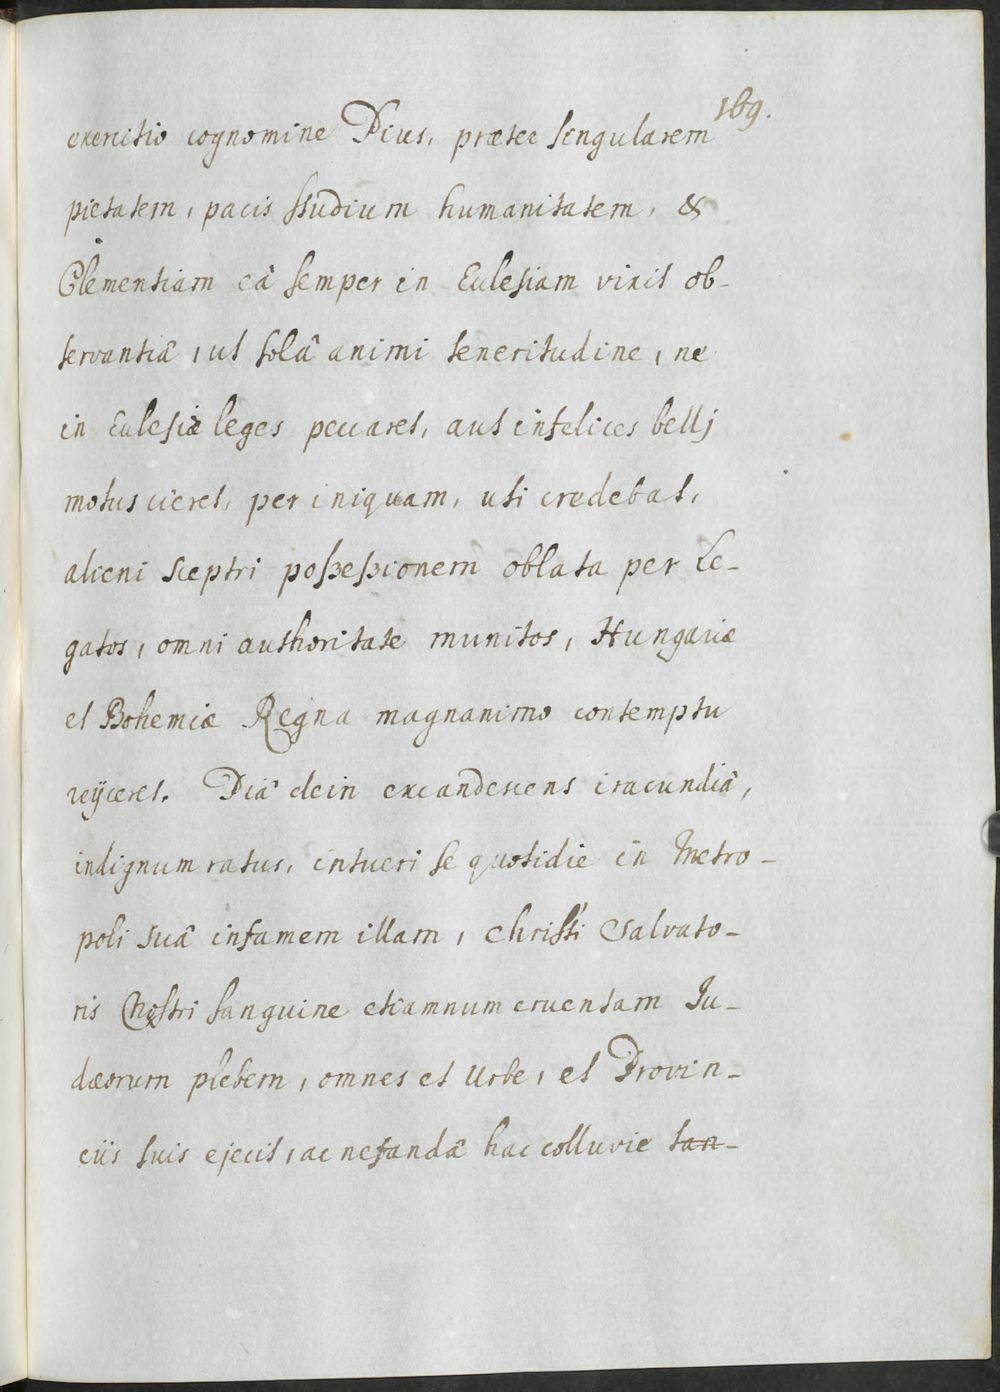 169.
exercitio cognomine Pius, præter singularem
pietatem, pacis studium humanitatem, &
Clementiam eâ semper in Ecclesiam vixit ob-
servantiâ, ut solâ animi teneritudine, ne
in Ecclesiæ leges peccaret, aut infelices bellj
motus cieret, per iniquam, uti credebat,
alieni sceptri poßeßionem oblata per Le-
gatos, omni authoritate munitos, Hungariæ
et Bohemiæ Regna magnanimo contemptu
reijceret. Piâ dein excandescens iracundiâ,
indignum ratus, intueri se quotidie in Metro-
poli suâ infamem illam, Christi Salvato-
ris Nostri sanguine etiamnum cruentam Ju-
dæorum plebem, omnes et Urbe, et Provin-
ciis suis ejecit, ac nefandâ hac colluvie tan-